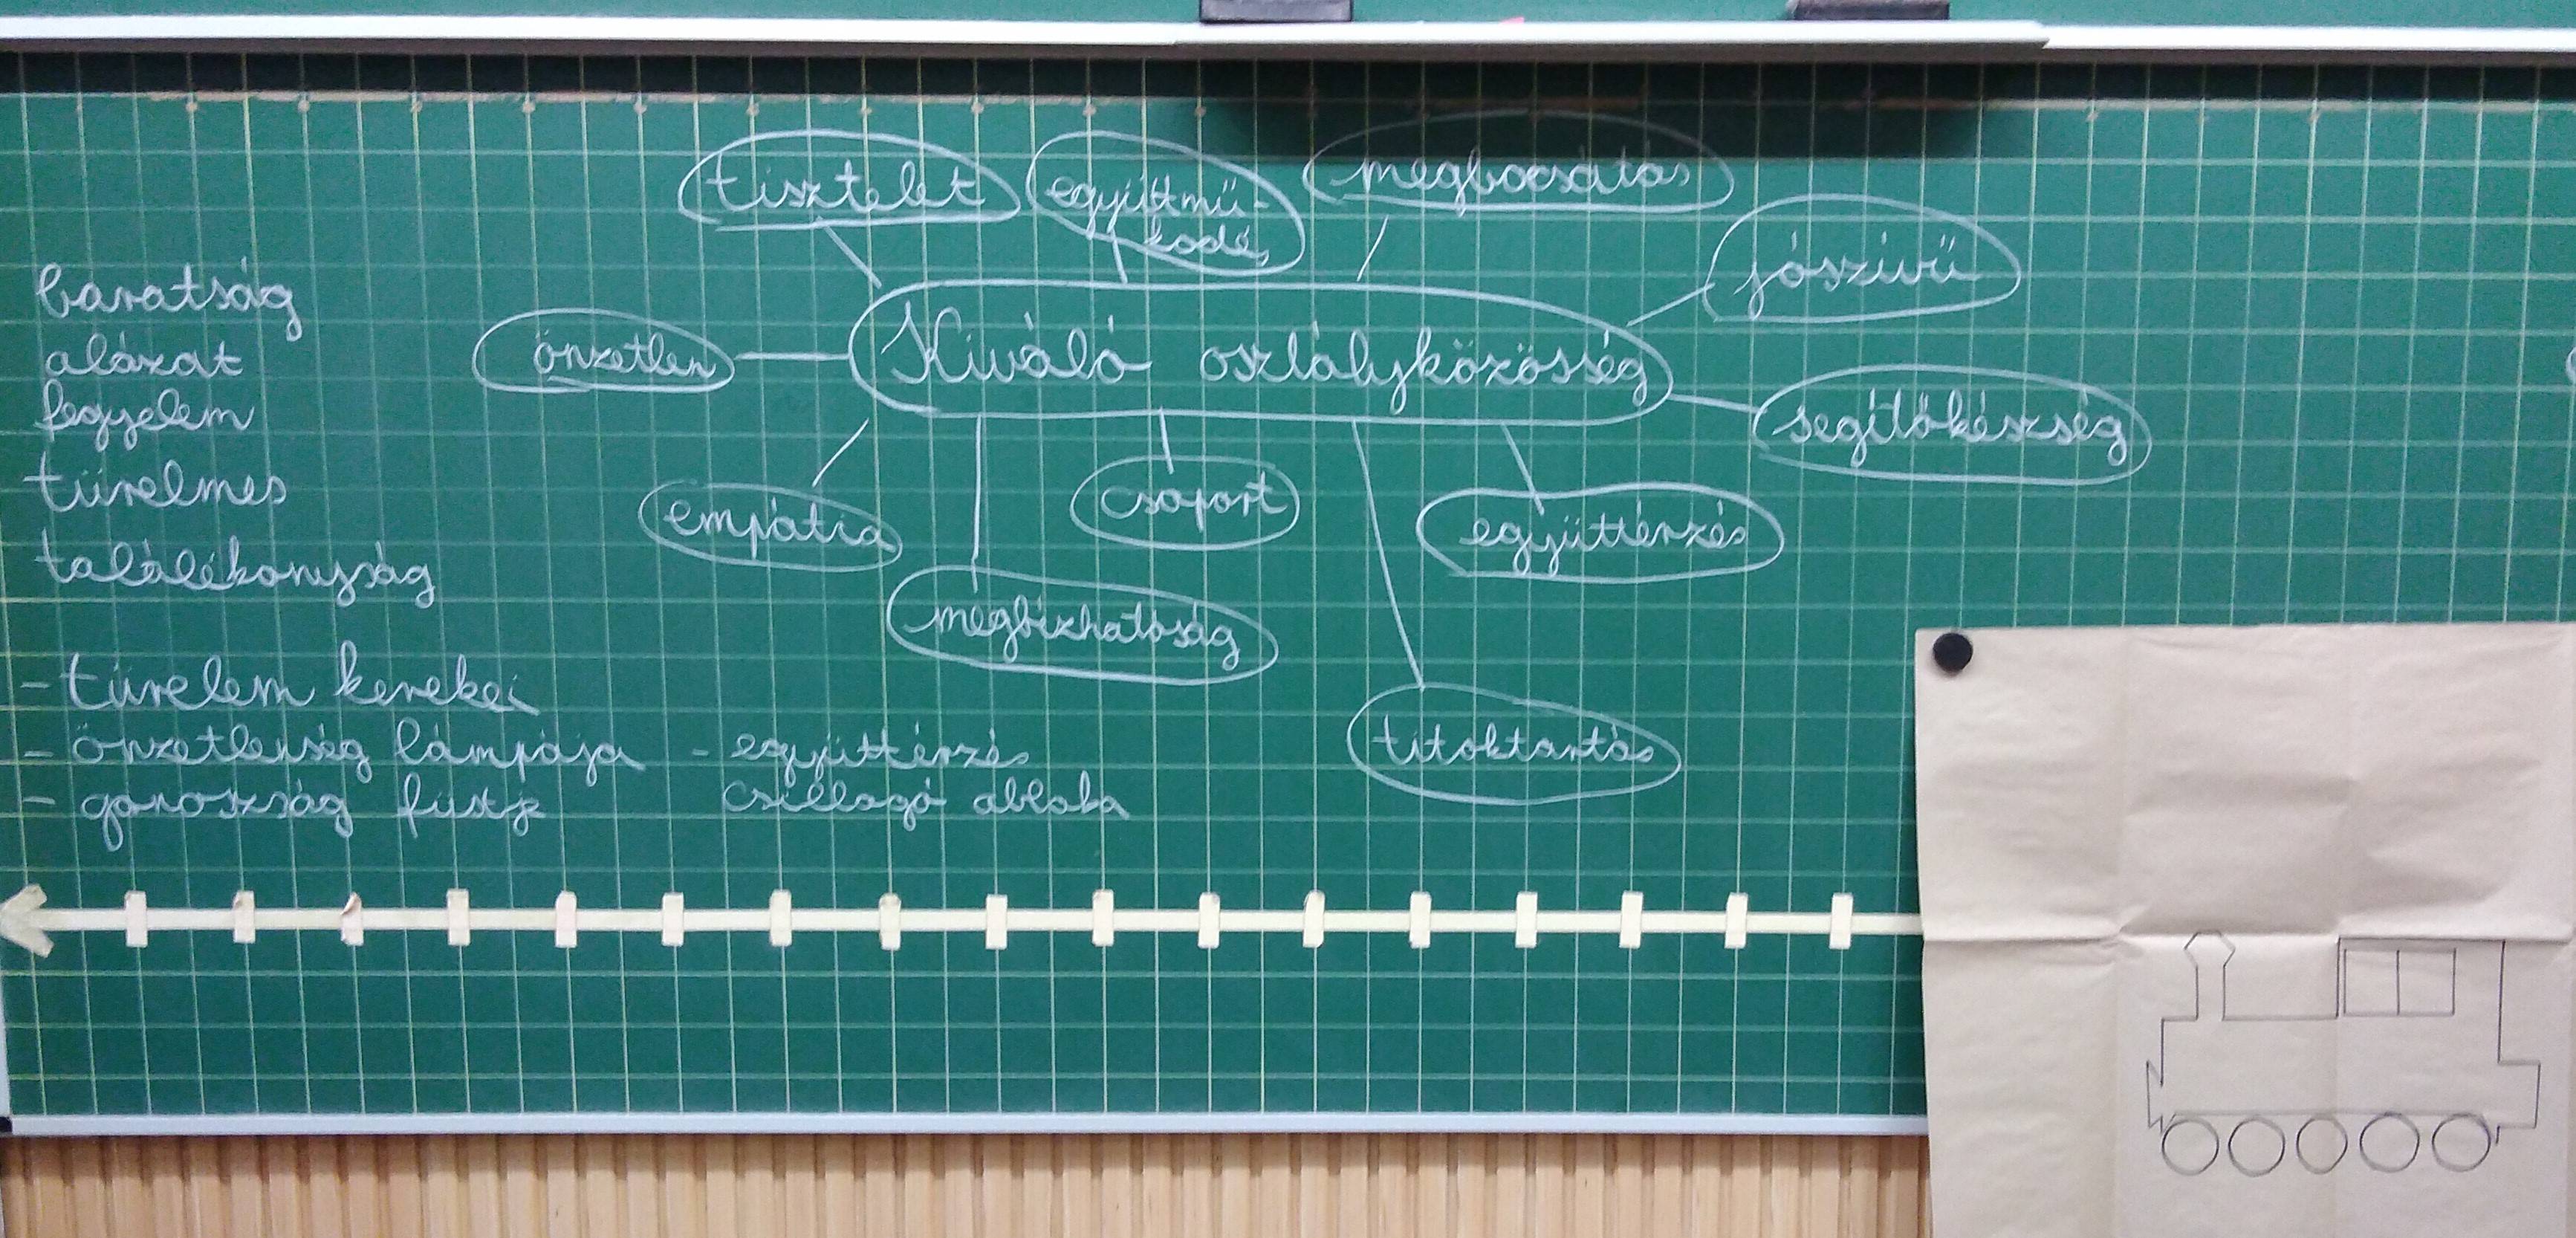 tisztelet
együttmű-
ködés
megbocsátás
jószívű
barátság
alázat
fegyelem
türelmes
találékonyság
önzetlen
Kiváló osztályközösség
segítőkészség
empátia
csoport
együttérzés
megbízhatóság
titoktartás
- türelem kerekei
- önzetlenség lámpája
- gonoszság füstje
- együttérzés
csillogó ablaka